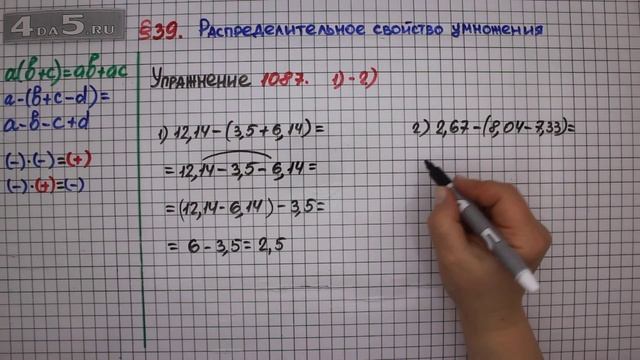 4DA5.RU
§39. Распределительное свойство умножения
a(b+c)=ab+ac
a-(b+c-d)=
a-b-c+d
(-)·(-)=(+)
(-)·(+)=(-)
Упражнение 1087. 1)-2)
1) 12,14-(3,5+6,14)=
=12,14-3,5-6,14=
=(12,14-6,14)-3,5=
=6-3,5=2,5
2) 2,67-(8,04-7,33)=